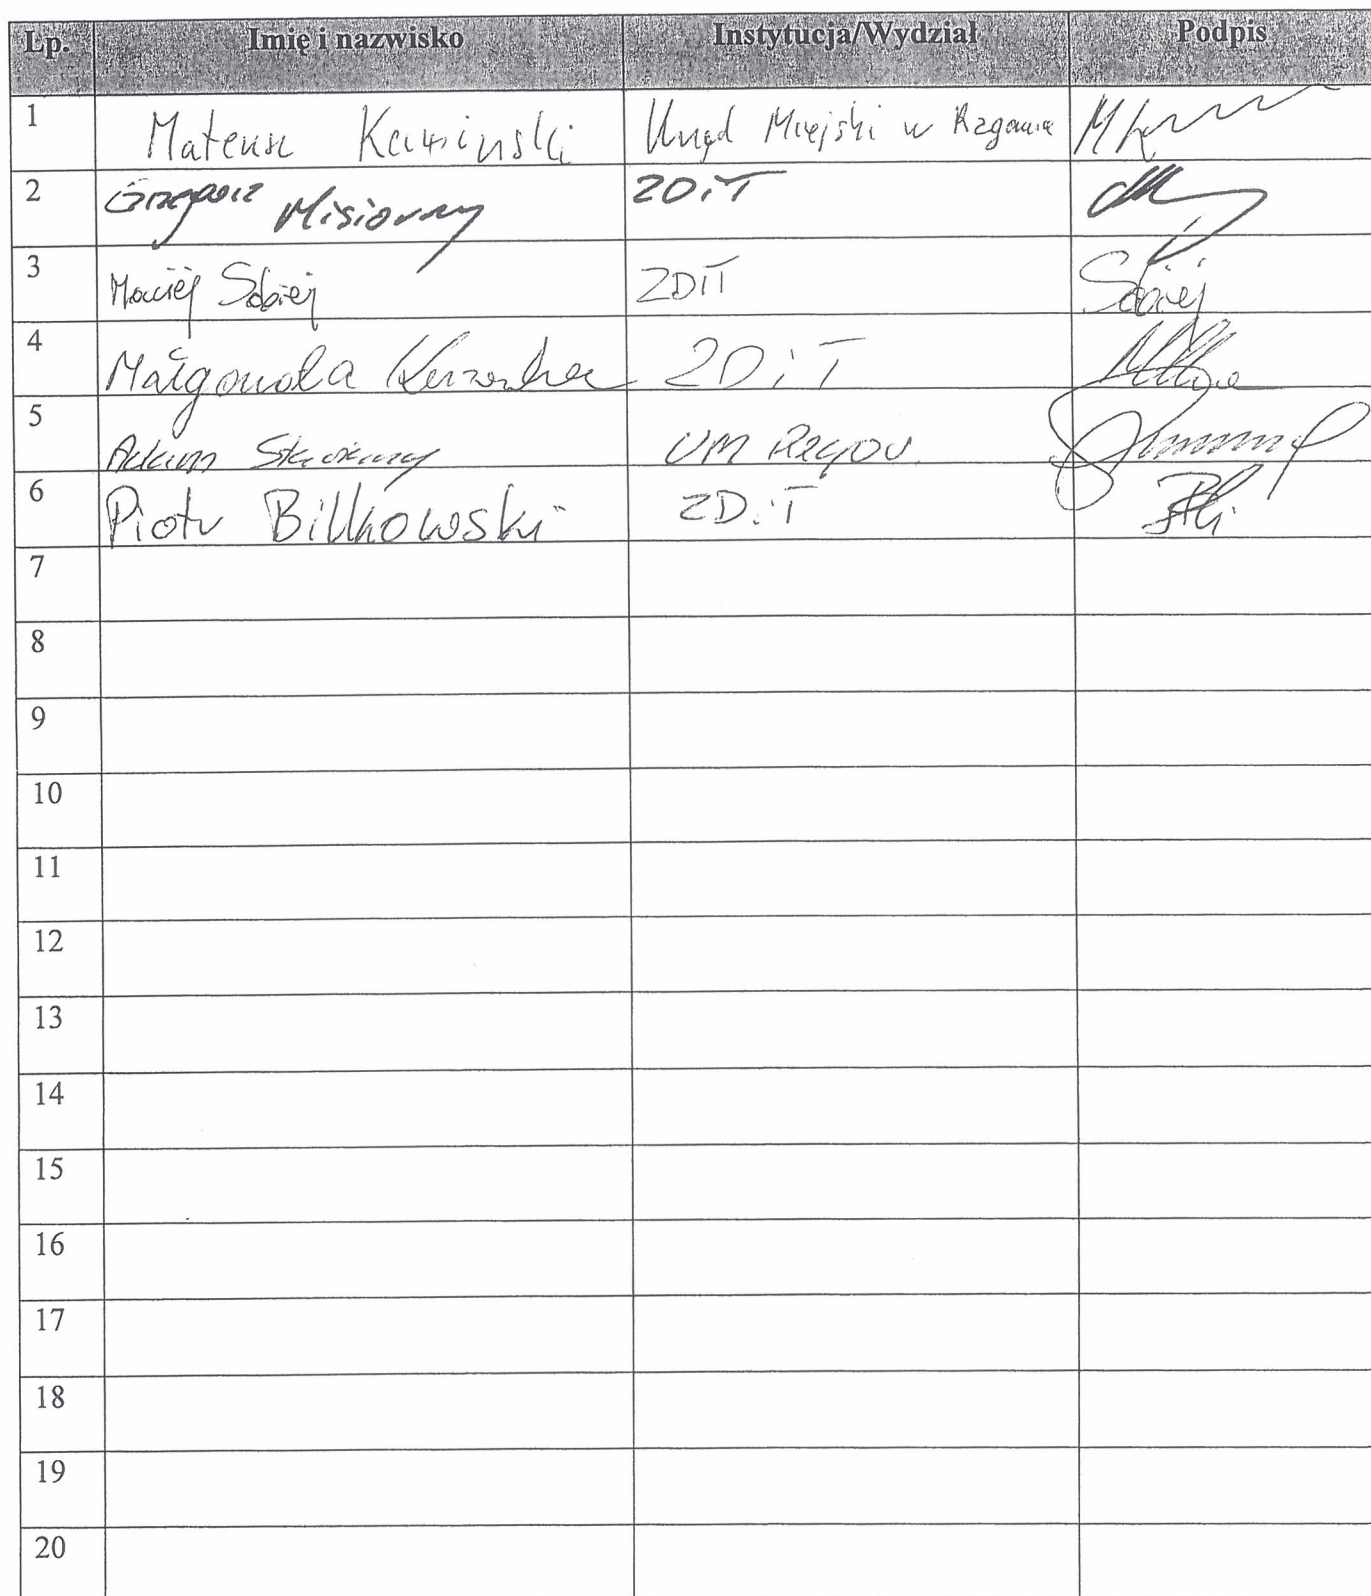 Lp. Imię i nazwisko Instytucja/Wydział Podpis
1 Mateusz Kamiński Urząd Miejski w Rzgowie
2 Grzegorz Misiorny ZDiT
3 Maciej Sobiej ZDiT Sobiej
4 Małgorzata ZDiT
5 Adam UM Rzgów
6 Piotr Bilkowski ZDiT
7
8
9
10
11
12
13
14
15
16
17
18
19
20